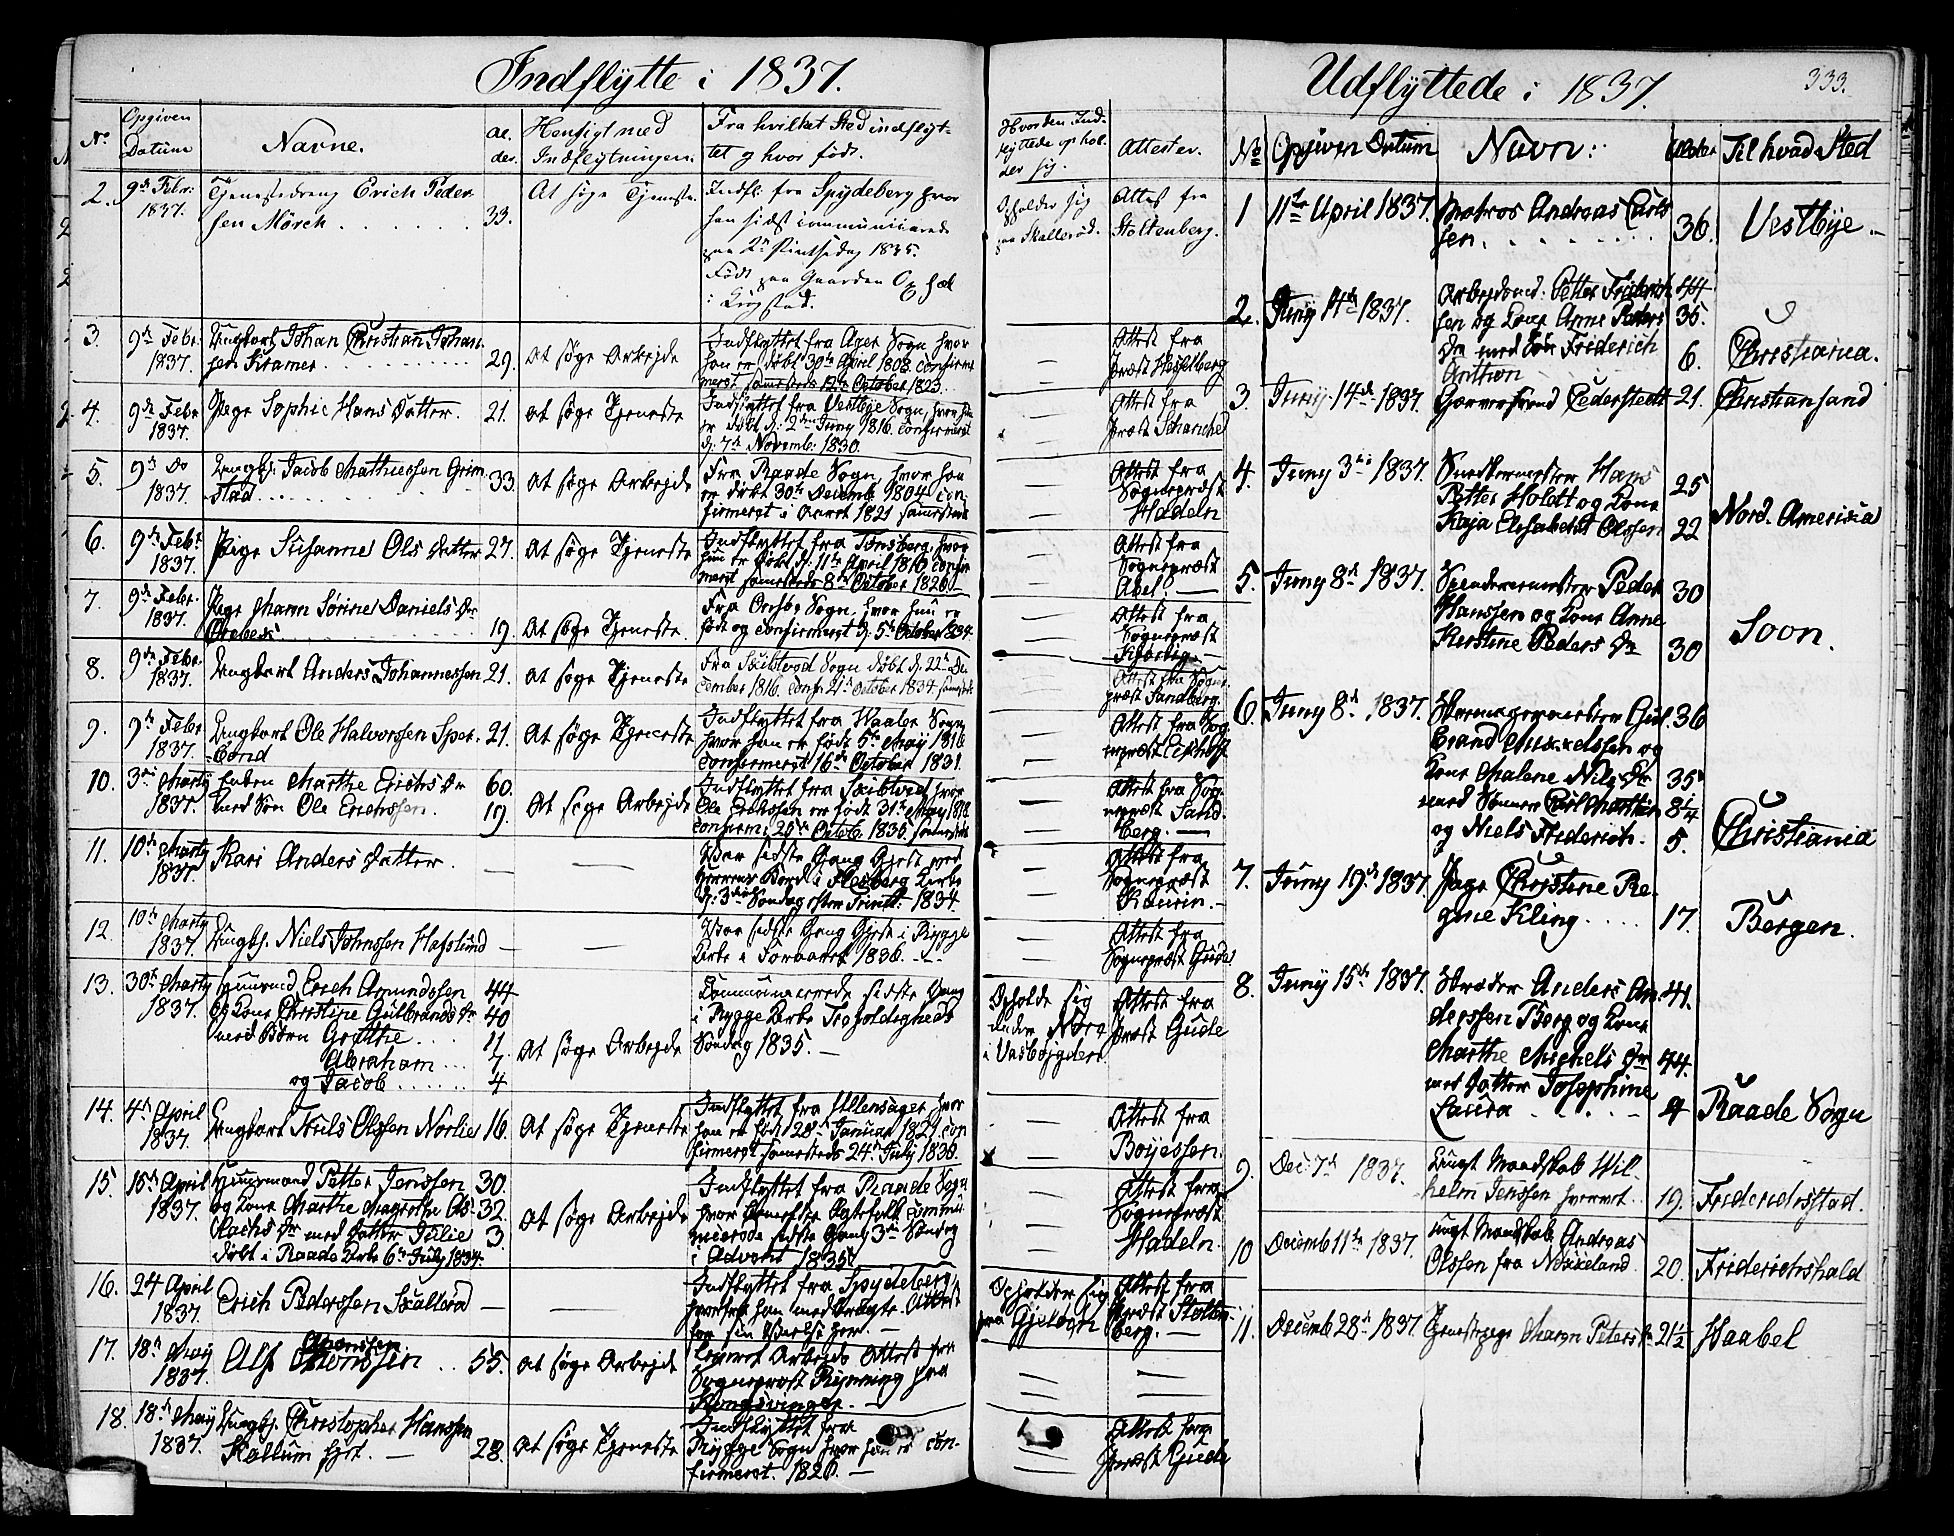 Indflÿtte i 1837.
No.
Opgiven
Datum
Navne.
Al-
der.
Hensigt med
Indflytningen.
Fra hvilket Sted indflyt-
tet og hvor født.
Hvor den Ind-
flyttede ophol-
der sig.
Attester.
2. 9de Febr.
1837.
Tjenestedreng Erich Peder-
sen Mörch
33.
At søge Tjeneste.
Indfl. fra Spydeberg hvor
han sidst communicerede
paa 2n Pintsedag 1835.
Født paa Gaarden
i Krogstad.
Opholder sig
paa Skallerød.
Attest fra
Stoltenberg.
3. 9de Febr.
1837.
Ungkarl Johan Christian Johan-
sen Kramer
29.
At søge Arbejde
Indflyttet fra Ager Sogn hvor
han er døbt 30te April 1808 confir-
meret samesteds 12te October 1823.
Attest fra
Præst Hesselberg
4. 9de Febr
1837.
Pige Sophie Hans Datter.
21.
At søge Tjeneste
Indflyttet fra Vestbye Sogn, hvor hun
er døbt d. 2den Juny 1816. confirmeret
d. 7de Novemb: 1830.
Attest fra
Præst Schanche
5. 9de Do
1837.
Ungk. Jacob Mathiessen Grim-
stad
33.
At søge Arbejde
Fra Raade Sogn, hvor han
er døbt 30te Decemb. 1804 con-
firmeret i Aaret 1821 samesteds
Attest fra
Sognepræst
Hadeln
6. 9de Febr.
1837.
Pige Susanne Ols Datter
27.
At søge Tjeneste
Indflyttet fra Tønsberg, hvor
hun er døbt d. 11te April 1810 confir-
meret samesteds 8de October 1826.
Attest fra
Sognepræst
Abel.
7. 9de Febr.
1837.
Pige Maren Sørine Daniels Dr
19.
At søge Tjeneste
Fra Onsøe Sogn, hvor hun er
født og confirmeret d. 5te October 1834.
Attest fra
Sognepræst
8. 9de Febr.
1837.
Ungkarl Anders Johannessen
21.
At søge Tjeneste
Fra Skibtvedt Sogn døbt d. 22de De-
cember 1816. conf. 21de October 1834 samesteds
Attest fra Sogne-
præst Sandberg.
9. 9de Febr
1837.
Ungkarl Ole Halvorssen Spet-
21.
At søge Tjeneste
Indflyttet fra Waaler Sogn
hvor han er født 5te May 1816
confirmeret 16de October 1831.
Attest fra Sog-
nepræst
10. 3die Marty
1837.
Enken Marthe Erichs Dr
med Søn Ole Erichssen.
60.
19.
At søge Arbejde
Indflyttet fra Skibtvedt hvor
Ole Erikssen er født 31te May 1818
confirm: Octob. 1835 samesteds
Attest fra Sog-
nepræst Sand-
berg.
11. 10de Marty
1837.
Kari Anders Datter.
Var sidste Gang Gjest ved
Herrens Bord i Flesberg Kirke
d. 3die Søndag efter Trinit: 1834.
Attest fra
Sognepræst
12. 10de Marty
1837.
Ungk. Niels Johnssen Hafslund
Var sidste Gang Gjest i Rygge
Kirke i Foraaret 1836.
Attest fra
Sognepræst Gude
13. 30te Marty
1837.
Huusmd Erich Amundssen
og Kone Christine Gulbrands Dr
med Børn Grethe
Abraham
og Jacob
44
40
11
7.
4
At søge Arbejde
Communicerede sidste Gang
i Rygge Kirke Trefoldigheds
Søndag 1835.
Opholde sig
under Nøre
i Vasbøygden
Attest fra
Præst Gude
14. 4de April
1837.
Ungkarl Niels Olssen Norlie
16.
At søge Tjeneste
Indflyttet fra Ullensager hvor
han er født 28de Januar 1821 con-
firmeret samesteds 24de July 1836.
Attest fra
Boyessen.
15. 15de April
1837.
Huusmand Petter Jenssen
og Kone Marthe Magrethe As-
lachs Dr med Datter Julie
døbt i Raade Kirke 6te July 1834.
30.
32.
3.
At søge Arbejde
Indflyttet fra Raade Sogn
hvor Ægtefolk commu-
nicerede sidste Gang 3die Søndag
i Advent 1835.
Attest fra
Sognepræst
Hadeln.
16. 24 April
1837.
Erich Pederssen Skallerød
Indflyttet fra Spydeberg,
hvorfra han medbragte Attest
for sin
Opholder sig
paa
Attest fra
Præst Stolten-
berg.
17. 18de May
1837.
Alf
55.
At søge Arbejde
Attest fra
Sognepræst fra
Kongsvinger.
18. 18de May
1837.
Ungk. Christopher Hanssen
Kallum
28.
At søge Tjeneste
Indflyttet fra
Rygge Sogn hvor han er con-
firmeret. 1826.
Attest fra
Præst Gude
Udflÿttede i 1837.
333.
No
Opgiven Datum
Navn:
Alder
Til hvad Sted
1 11te April 1837.
Matros Andreas Carls-
sen.
36.
Vestbÿe.
2. Juny 14de 1837.
Arbejdsmd. Petter Friderich-
sen og Kone Anne Peders
Dr med Søn Friderich
Anthon
44
35.
6.
Christiania.
3. Juny 14de 1837.
Garversvend Cederstedt
21.
Christiansand
4. Juny 3die 1837.
Snedkermester Hans
Petter Holdt og Kone
Kaja Elisabeth Olssen
25
22
Nord. Amerika
5. Juny 8de 1837.
Peder
Hanssen og Kone Anne
Kirstine Peders Dr
30
30
Soon.
6. Juny 8de 1837.
Skomagermester Gul-
brand Mikkelssen og
Kone Malene Nils Dr
med Sønner Carl Marthin
og Niels Friderich.
36
35
8¼
5.
Christiania
7. Juny 19de 1837
Pige Christine Re-
gine Kling.
17.
Bergen.
8. Juny 15de 1837.
Anders An-
derssen Berg og Kone
Marthe Mighels Dr
med Datter Josephine
Laura
41.
44.
4
Raade Sogn
9. Dec 7de 1837.
Ungt Mandskab Wil-
helm Jenssen
19.
Friderichsstad.
10 Decemb 11te 1837.
Ungt Mandskab Andreas
Olssen fra
20.
Friderichshald
11. Decemb 28de 1837.
Tjenestepige Maren Peters Dr
21½
Haabel